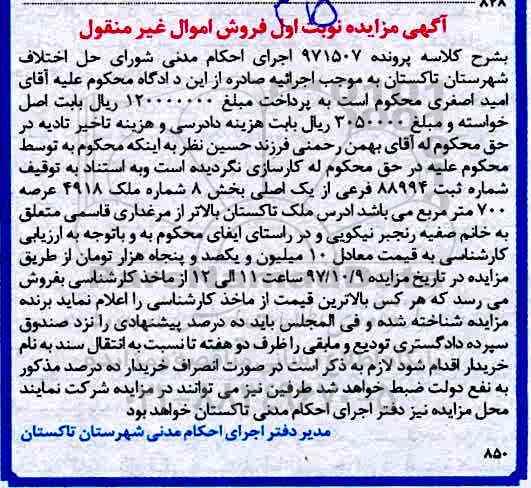 ۸۲۸
آگهی مزایده نوبت اول فروش اموال غیر منقول
بشرح کلاسه پرونده ۹۷۱۵۰۷ اجرای احکام مدنی شورای حل اختلاف
شهرستان تاکستان به موجب اجرائیه صادره از این د ادگاه محکوم علیه آقای
امید اصغری محکوم است به پرداخت مبلغ ۱۲۰۰۰۰۰۰۰ ریال بابت اصل
خواسته و مبلغ ۳۰۵۰۰۰۰ ریال بابت هزینه دادرسی و هزینه تاخیر تادیه در
حق محکوم له آقای بهمن رحمنی فرزند حسین نظر به اینکه محکوم به توسط
محکوم علیه در حق محکوم له کارسازی نگردیده است وبه استناد به توقیف
شماره ثبت ۸۸۹۹۴ فرعی از یک اصلی بخش ۸ شماره ملک ۴۹۱۸ عرصه
۷۰۰ متر مربع می باشد ادرس ملک تاکستان بالاتر از مرغداری قاسمی متعلق
به خانم صفیه رنجبر نیکویی و در راستای ایفای محکوم به و باتوجه به ارزیابی
کارشناسی به قیمت معادل ۱۰ میلیون و یکصد و پنجاه هزار تومان از طریق
مزایده در تاریخ مزایده ۹۷/۱۰/۹ ساعت ۱۱ الی ۱۲ از ماخذ کارشناسی بفروش
می رسد که هر کس بالاترین قیمت از ماخذ کارشناسی را اعلام نماید برنده
مزایده شناخته شده و فی المجلس باید ده درصد پیشنهادی را نزد صندوق
سپرده دادگستری تودیع و مابقی را ظرف دو هفته تا نسبت به انتقال سند به نام
خریدار اقدام شود لازم به ذکر است در صورت انصراف خریدار ده درصد مذکور
به نفع دولت ضبط خواهد شد طرفین نیز می توانند در مزایده شرکت نمایند
محل مزایده نیز دفتر اجرای احکام مدنی تاکستان خواهد بود
مدیر دفتر اجرای احکام مدنی شهرستان تاکستان
۸۵۰